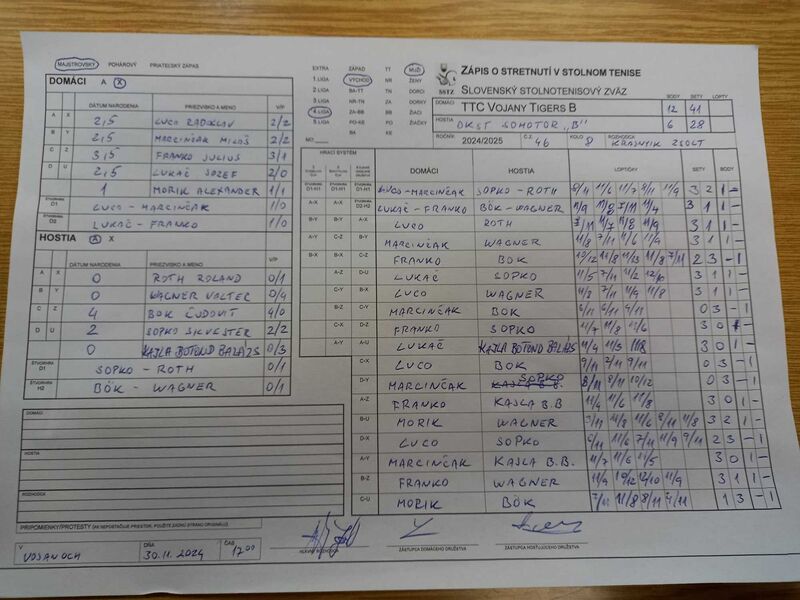 MAJSTROVSKÝ POHÁROVÝ PRIATEĽSKÝ ZÁPAS
DOMÁCI A X
DÁTUM NARODENIA PRIEZVISKO A MENO V/P
A X 2,5 LUCO RADISLAV 2/2
B Y 2,5 MARCINČAK MILOŠ 2/2
C Z 3,5 FRANKO JÚLIUS 3/1
D U 2,5 LUKÁČ JOZEF 2/0
1 MORIK ALEXANDER 1/1
ŠTVORHRA D1 LUCO - MARCINČAK 1/0
ŠTVORHRA D2 LUKÁČ - FRANKO 1/0
HOSTIA A X
DÁTUM NARODENIA PRIEZVISKO A MENO V/P
A X 0 ROTH ROLAND 0/1
B Y 0 WAGNER VALTER 0/4
C Z 4 BÖK ĽUDOVÍT 4/0
D U 2 SOPKO SILVESTER 2/2
0 KAJLA BOTOND BALÁZS 0/3
ŠTVORHRA D1 SOPKO - ROTH 0/1
ŠTVORHRA H2 BÖK - WAGNER 0/1
DOMÁCI
HOSTIA
ROZHODCA
PRIPOMIENKY/PROTESTY (AK NEPOSTAČUJE PRIESTOR, POUŽITE ZADNÚ STRANU ORIGINÁLU)
V VOJANOCH DŇA 30.11.2024 ČAS 17.00
HLAVNÝ ROZHODCA
ZÁSTUPCA DOMÁCEHO DRUŽSTVA
ZÁSTUPCA HOSŤUJÚCEHO DRUŽSTVA
EXTRA ZÁPAD TT MUŽI
1.LIGA VÝCHOD NR ŽENY
2.LIGA BA-TT TN DORCI
3.LIGA NR-TN ZA DORKY
4.LIGA ZA-BB BB ŽIACI
5.LIGA PO-KE PO ŽIAČKY
BA KE
MO
SSTZ
ZÁPIS O STRETNUTÍ V STOLNOM TENISE
SLOVENSKÝ STOLNOTENISOVÝ ZVÄZ
BODY SETY LOPTY
DOMÁCI TTC VOJANY TIGERS B 12 41
HOSTIA OKST SOMOTOR "B" 6 28
ROČNÍK 2024/2025 Č.Z. 46 KOLO 8 ROZHODCA KRASNYIK ZSOLT
HRACÍ SYSTÉM
DOMÁCI HOSTIA LOPTIČKY SETY BODY
D1-H1 D1-H1 D1-H1 LUCO-MARCINČAK SOPKO - ROTH 3 2 1 -
A-X A-X D2-H2 LUKAČ - FRANKO BÖK - WAGNER 11/9 11/8 7/11 11/4 3 1 1 -
B-Y B-Y A-X LUCO ROTH 7/11 11/7 11/8 11/9 3 1 1 -
A-Y C-Z B-Y MARCINČAK WAGNER 11/8 7/11 11/6 11/9 3 1 1 -
B-X B-X C-Z FRANKO BÖK 10/12 11/8 11/13 11/8 7/11 2 3 - 1
A-Z D-U LUKAČ SOPKO 11/5 7/11 11/2 12/10 3 1 1 -
C-Y B-X LUCO WAGNER 11/8 7/11 11/9 11/8 3 1 1 -
B-Z C-Y MARCINČAK BÖK 0 3 - 1
C-X D-Z FRANKO SOPKO 11/7 11/8 3 0 1 -
A-Y A-U LUKAČ KAJLA BOTOND BALÁZS 11/4 11/3 11/8 3 0 1 -
C-X LUCO BÖK 9/11 2/11 9/11 0 3 - 1
D-Y MARCINČAK SOPKO 8/11 8/11 10/12 0 3 - 1
A-Z FRANKO KAJLA B.B 11/4 11/6 11/8 3 0 1 -
B-U MORIK WAGNER 3 2 1 -
D-X LUCO SOPKO 6/11 11/6 7/11 11/9 9/11 2 3 - 1
A-Y MARCINČAK KAJLA B.B. 11/7 11/6 11/5 3 0 1 -
B-Z FRANKO WAGNER 11/9 10/12 12/10 11/9 3 1 1 -
C-U MORIK BÖK 7/11 11/8 8/11 4/11 1 3 - 1